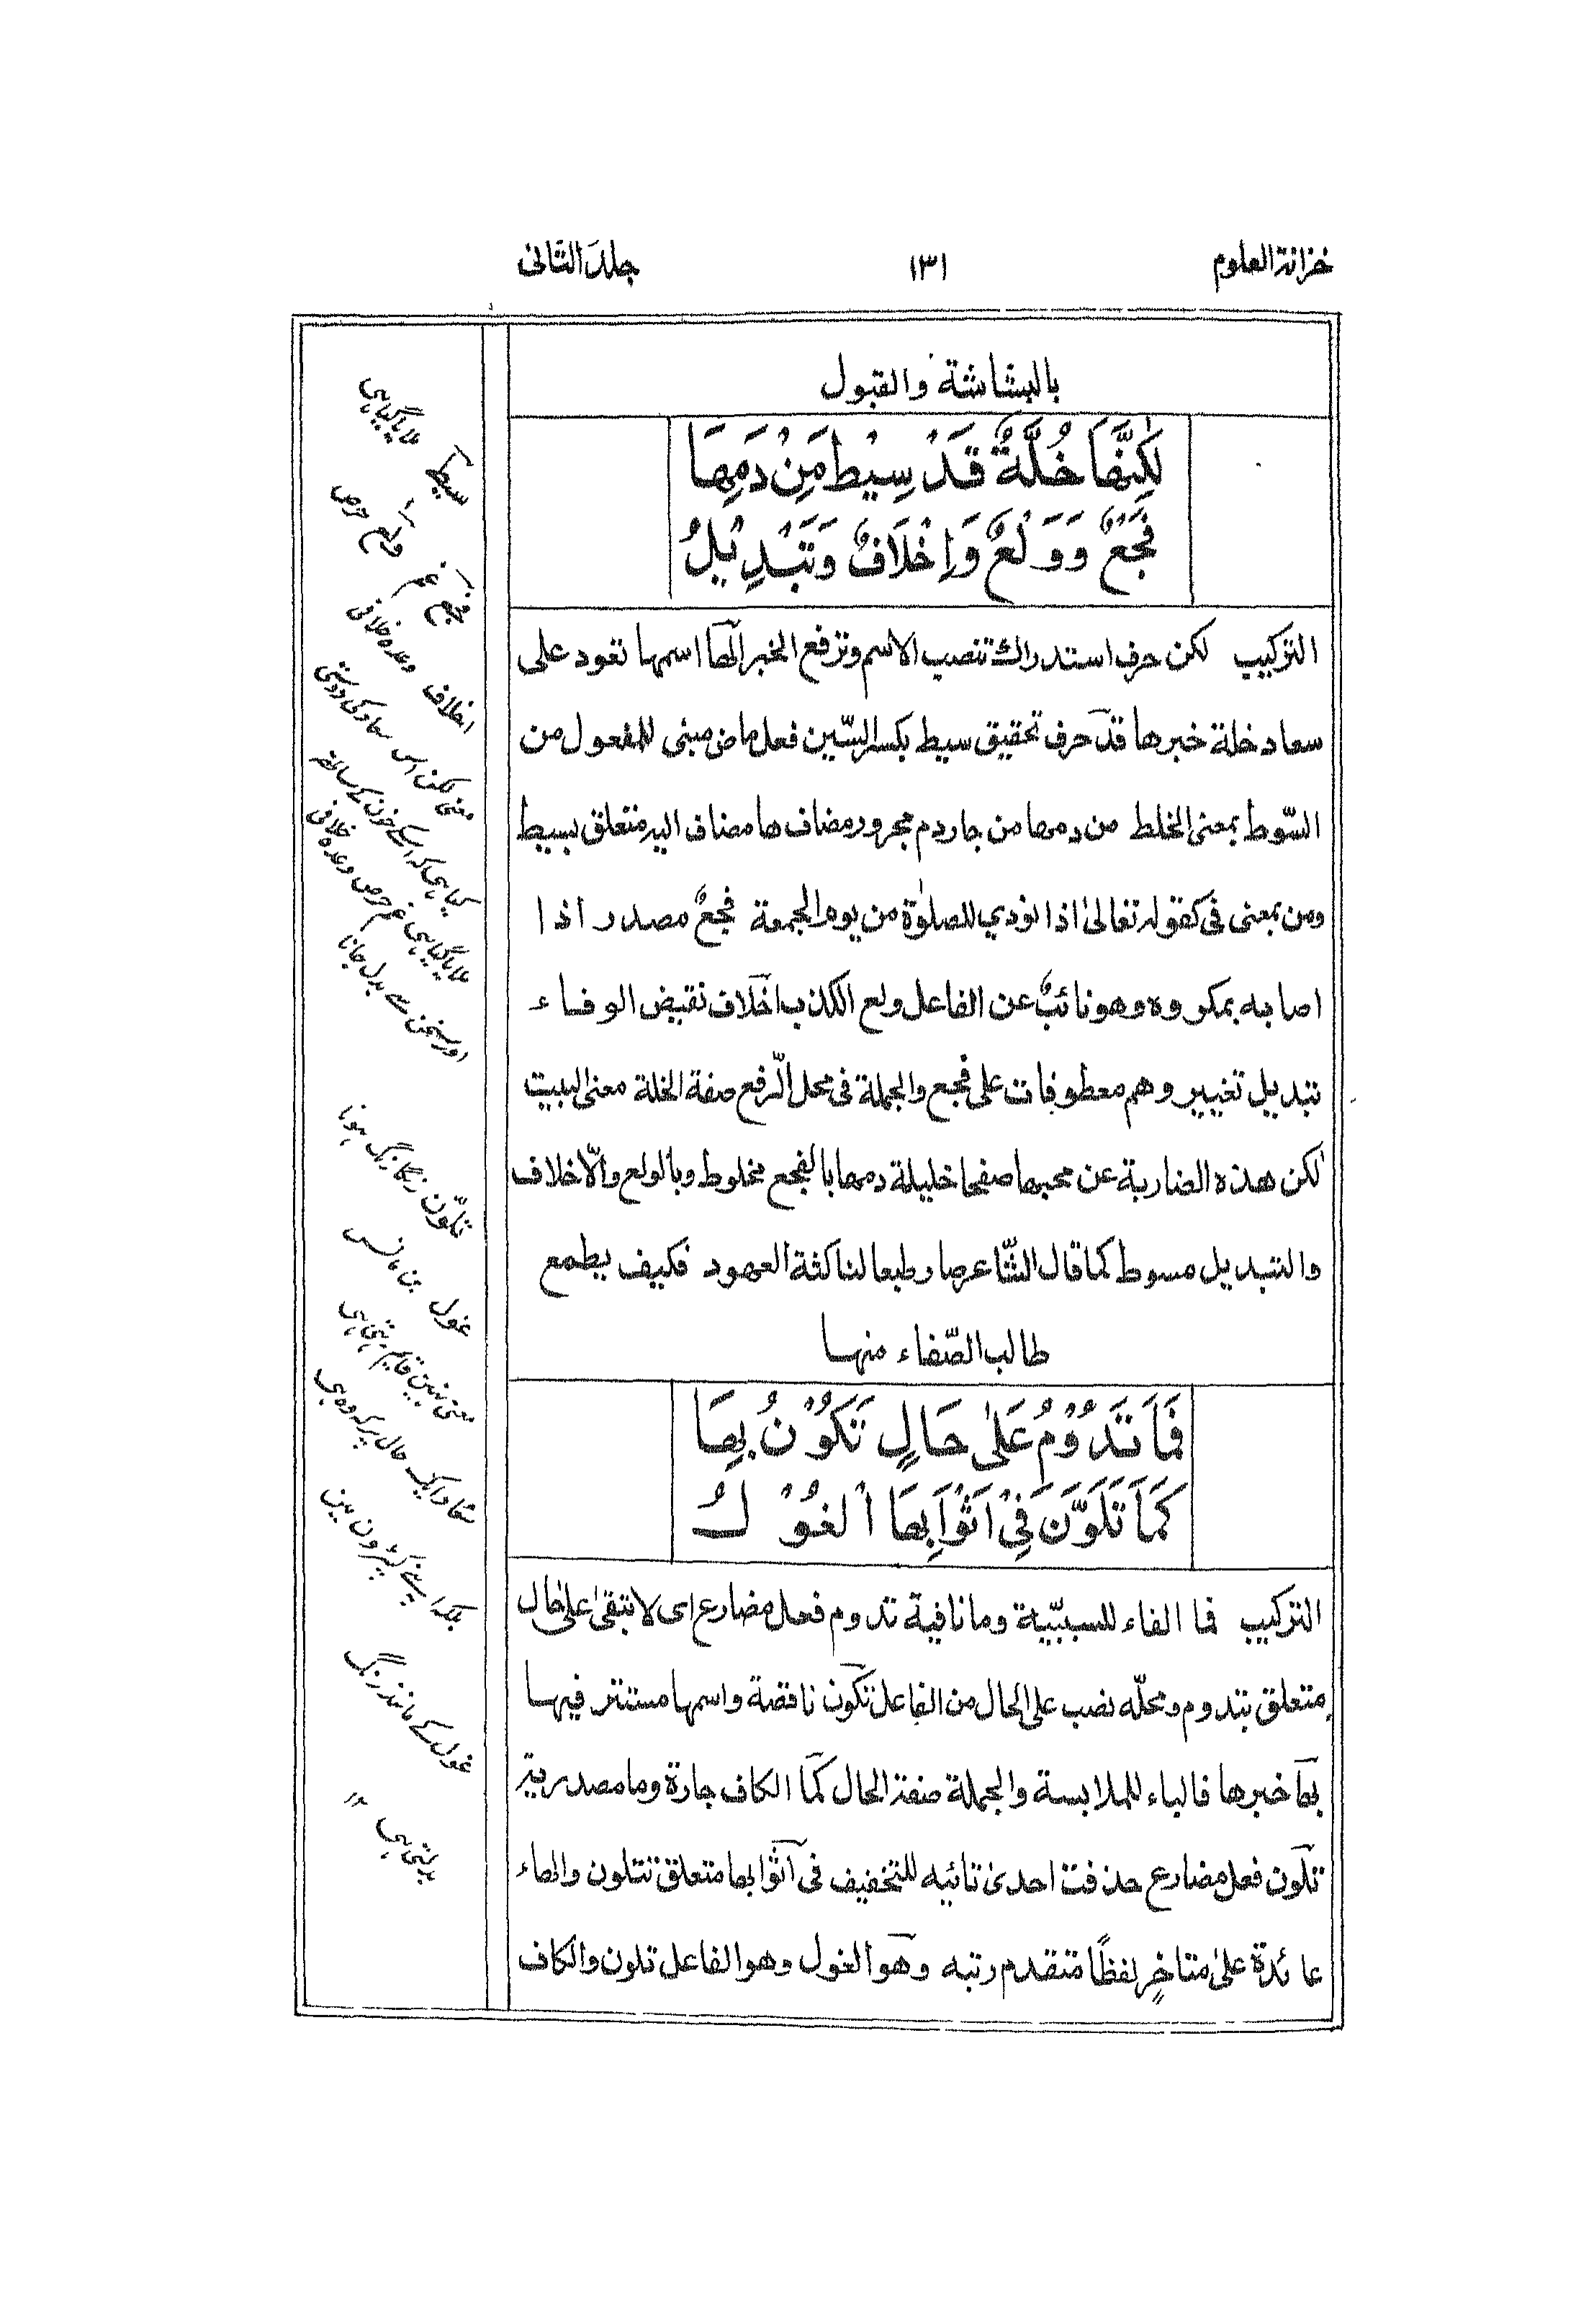 خزانة العلوم
١٣١
جلد الثانی
بالبشاشة والقبول
لٰكِنَّهَا خُلَّةٌ قَدْ سِيْطَ مِنْ دَمِهَا
فَجْعٌ وَوَلْعٌ وَاِخْلَافٌ وَتَبْدِيْلُ
التركيب لكن حرف استدراك تنصب الاسم وترفع الخبر الها اسمها تعود على
سعاد خلة خبرها قد حرف تحقيق سيط بكسر السّين فعل ماض مبنى للمفعول من
السّوط بمعنى الخلط من دمها من جار دم مجرور مضاف ها مضاف اليه متعلق بسيط
ومن بمعنى فى كقوله تعالىٰ اذا نودي للصلوٰة من يوم الجمعة فجعٌ مصدر اذا
اصابه بمكروه وهو نائبٌ عن الفاعل ولع الكذب اخلاف نقيض الوفاء
تبديل تغيير وهم معطوفات على فجع والجملة فى محل الرّفع صفة الخلة معنى البيت
لكن هذه الضاربة عن محبها صفحا خليلة دمها بالفجع مخلوط وبالولع والاخلاف
والتبديل مسوط كما قال الشّاعر صار طبعا لنا كثة العهود فكيف يطمع
طالب الصّفاء منها
فَمَا تَدُوْمُ عَلٰى حَالٍ تَكُوْنُ بِهَا
كَمَا تَلَوَّنَ فِيْ اَثْوَابِهَا الْغُوْلُ
التركيب فما الفاء للسببّية وما نافية تدوم فعل مضارع اى لا تبقىٰ علىٰ حال
متعلق بتدوم ومحلّه نصب على الحال من الفاعل تكون ناقصة واسمها مستتر فيها
بها خبرها فالباء للملابسة والجملة صفة الحال كما الكاف جارة وما مصدرية
تلون فعل مضارع حذفت احدىٰ تائيه للتخفيف فى اثوابها متعلق تتلون والهاء
عائدة علىٰ متاخرٍ لفظًا متقدم رتبه وهو الغول وهو الفاعل تلون والكاف
سیط ملایا گیا ہی
فجع غم ولع حرص
اخلاف وعدہ خلافی
معنی لکن اس سعاد کی دوستی
کیا ہی کہ اسکے خون کے ساتھ
ملایا گیا ہی غم حرص وعدہ خلافی
اور سخن سے بدل جانا
تلوّن رنگا رنگ ہونا
غول
معنی نہین قایم رہتی ہی
سعاد ایک حال پر کہ وہ ہی
بلکہ اپنے کپڑون مین
غول کے مانند رنگ
بدلتی ہی ١٢